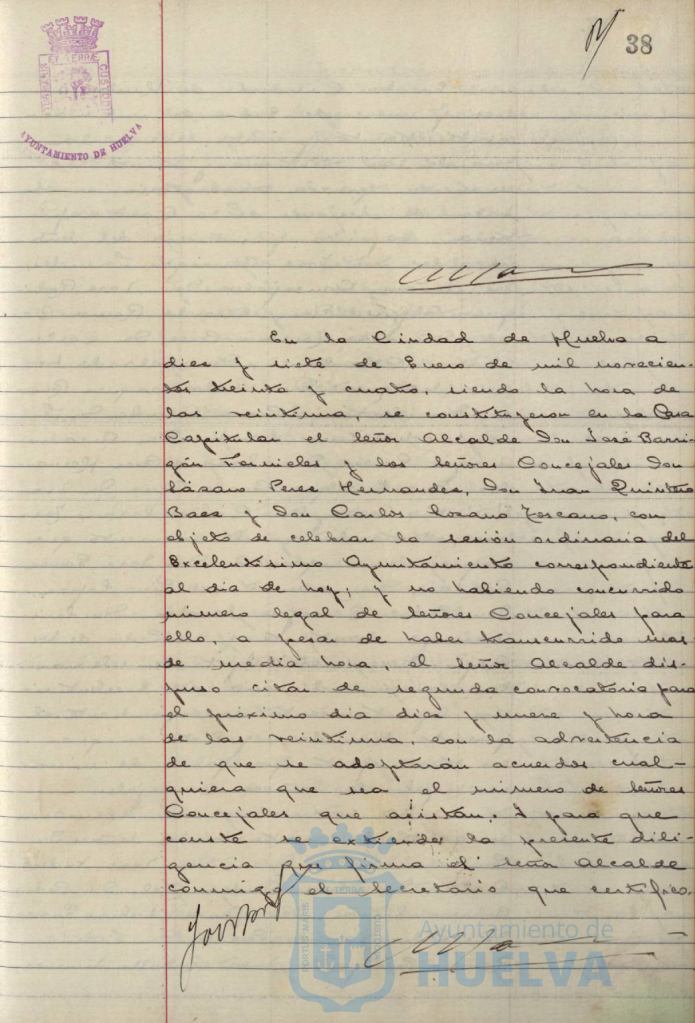 38
PORTUS MARIS
ET TERRÆ
CUSTODIA
AYUNTAMIENTO DE HUELVA
En la Ciudad de Huelva a
diez y siete de Enero de mil novecien-
tos treinta y cuatro, siendo la hora de
las veintiuna, se constituyeron en la Casa
Capitular el señor Alcalde Don José Barri-
gón Fornieles y los señores Concejales Don
Lázaro Perez Hernandez, Don Juan Quintero
Baez y Don Carlos Lozano Toscano, con
objeto de celebrar la sesión ordinaria del
Excelentísimo Ayuntamiento correspondiente
al dia de hoy, y no habiendo concurrido
número legal de señores Concejales para
ello, a pesar de haber transcurrido mas
de media hora, el señor Alcalde dis-
puso citar de segunda convocatoria para
el próximo dia diez y nueve y hora
de las veintiuna, con la advertencia
de que se adoptarán acuerdos cual-
quiera que sea el número de señores
Concejales que asistan. Y para que
conste se extiende la presente dili-
gencia que firma el señor Alcalde
conmigo el Secretario que certifico.
PORTUS MARIS
ET TERRÆ
CUSTODIA
Ayuntamiento de
HUELVA